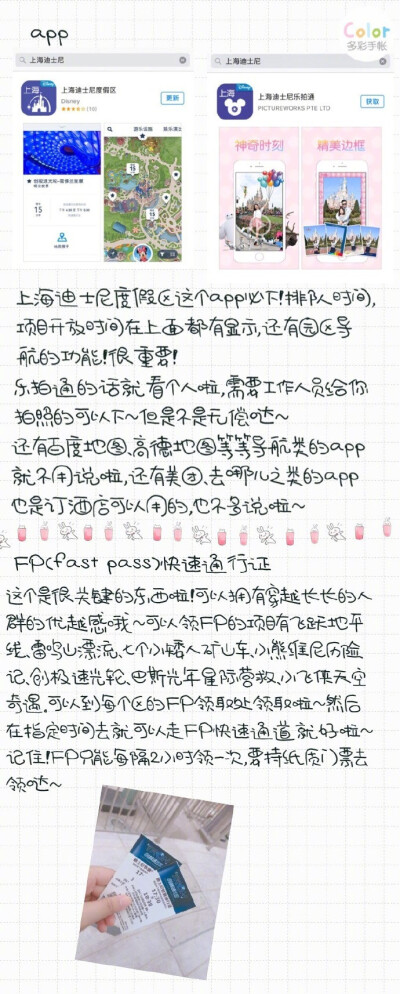 app
Color
多彩手帐
上海迪士尼
上海迪士尼
上海
Disney
上海迪士尼度假区
Disney
更新
上海
上海迪士尼乐拍通
PICTUREWORKS PTE LTD
获取
神奇时刻
精美边框
上海迪士尼度假区这个app必下!排队时间,
项目开放时间在上面都有显示,还有园区导
航的功能!很重要!
乐拍通的话就看个人啦,需要工作人员给你
拍照的可以下~但是不是无偿哒~
还有百度地图、高德地图等等导航类的app
就不用说啦,还有美团、去哪儿之类的app
也是订酒店可以用的,也不多说啦~
FP(fast pass)快速通行证
这个是很关键的东西啦!可以拥有穿越长长的人
群的优越感哦~可以领FP的项目有飞跃地平
线、雷鸣山漂流、七个小矮人矿山车、小熊维尼历险
记、创极速光轮、巴斯光年星际营救、小飞侠天空
奇遇.可以到每个区的FP领取处领取啦~然后
在指定时间去就可以走FP快速通道就好啦~
记住!FP只能每隔2小时领一次,要持纸质门票去
领哒~